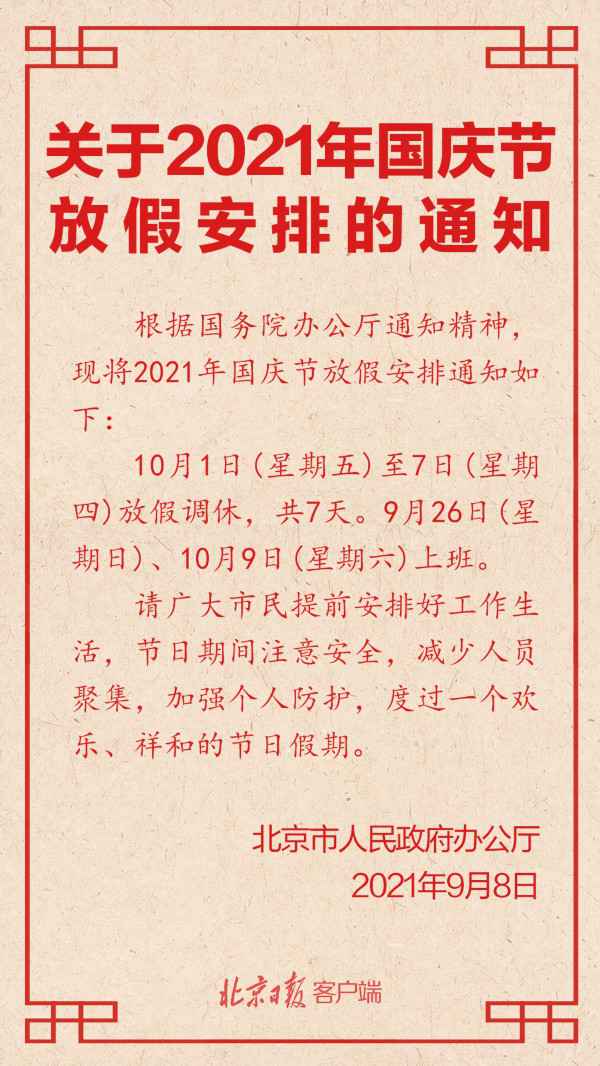 关于2021年国庆节
放假安排的通知
根据国务院办公厅通知精神，
现将2021年国庆节放假安排通知如
下：
10月1日(星期五)至7日(星期
四)放假调休，共7天。9月26日(星
期日)、10月9日(星期六)上班。
请广大市民提前安排好工作生
活，节日期间注意安全，减少人员
聚集，加强个人防护，度过一个欢
乐、祥和的节日假期。
北京市人民政府办公厅
2021年9月8日
北京日报客户端